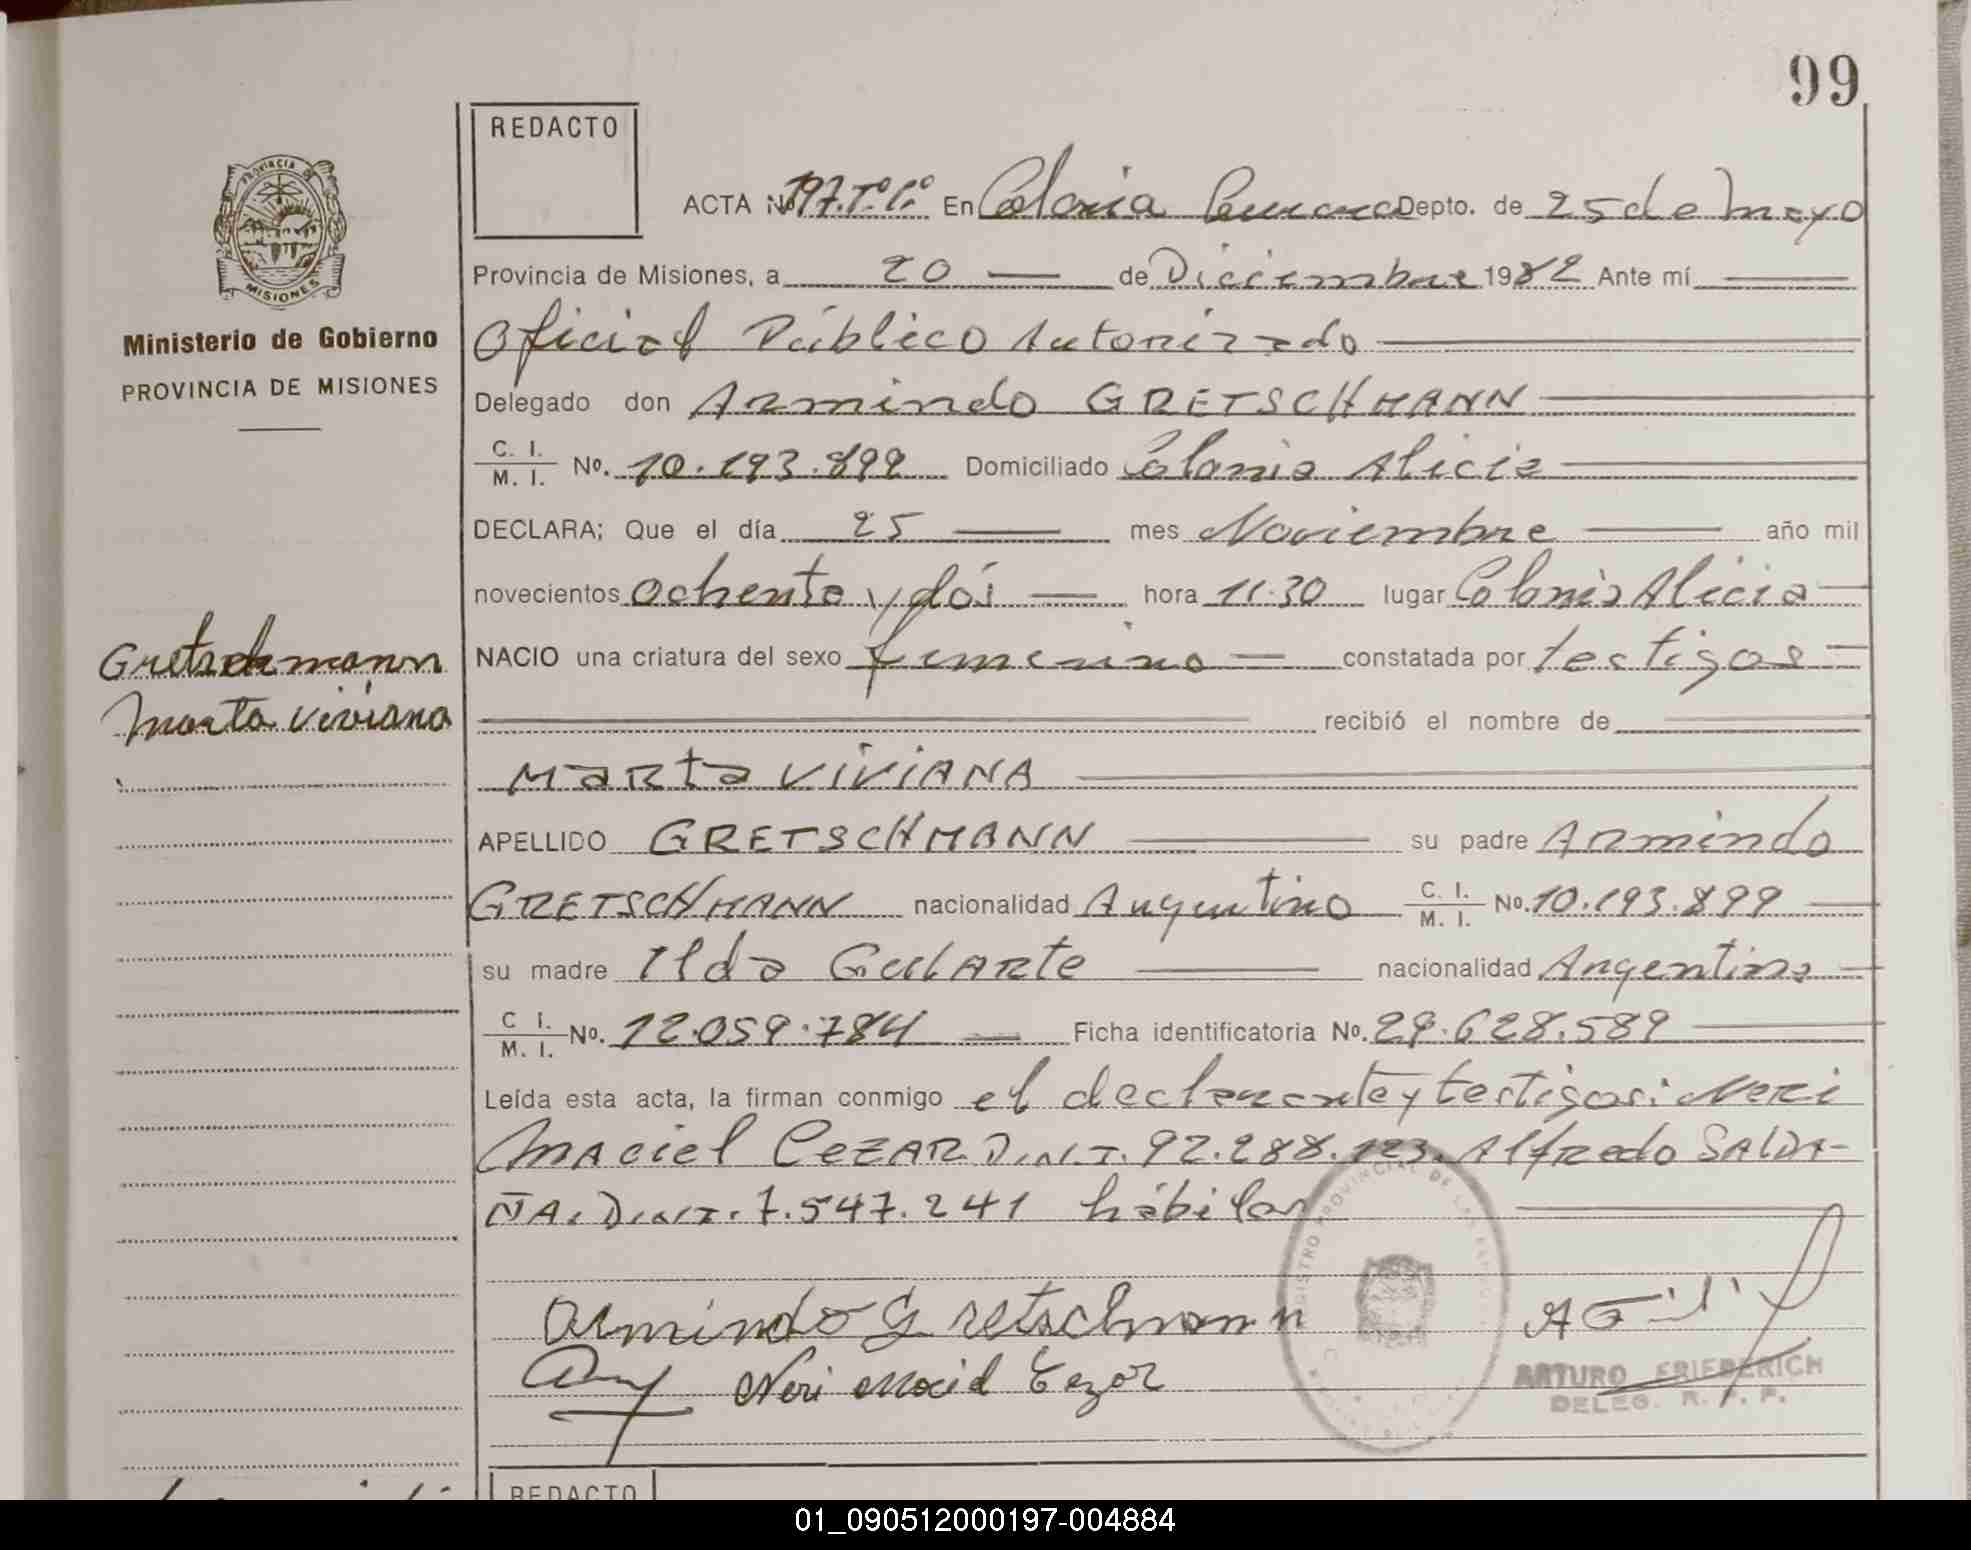 99
REDACTO
ACTA No 197. Tº. 1º. En Colonia Depto. de 25 de Mayo
PROVINCIA
MISIONES
Provincia de Misiones, a 20 de Diciembre 1982 Ante mí
Ministerio de Gobierno
PROVINCIA DE MISIONES
Oficial Público Autorizado
Delegado don Armindo GRETSCHMANN
C. I. / M. I. No. 10.193.899 Domiciliado Colonia Alicia
DECLARA; Que el día 25 mes Noviembre año mil
novecientos ochenta y dós hora 11.30 lugar Colonia Alicia
Gretschmann
Marta Viviana
NACIO una criatura del sexo femenino constatada por testigos
recibió el nombre de
MaRta ViViANA
APELLIDO GRETSCHMANN su padre Armindo
GRETSCHMANN nacionalidad Argentino C. I. / M. I. No. 10.193.899
su madre Ilda GulARte nacionalidad Argentina
C I. / M. I. No. 12.059.784 Ficha identificatoria No. 29.628.589
Leída esta acta, la firman conmigo el declarante y testigos: Neri
MAciel CeZAR D.N.I. 92.288.123. Alfredo SALDA-
ÑA. D.N.I. 7.547.241 hábiles
Armindo Gretschmann
Neri Maciel Cezar
REGISTRO PROVINCIAL DE LAS
ARTURO FRIEDERICH
DELEG. R. P. P.
REDACTO
01_090512000197-004884